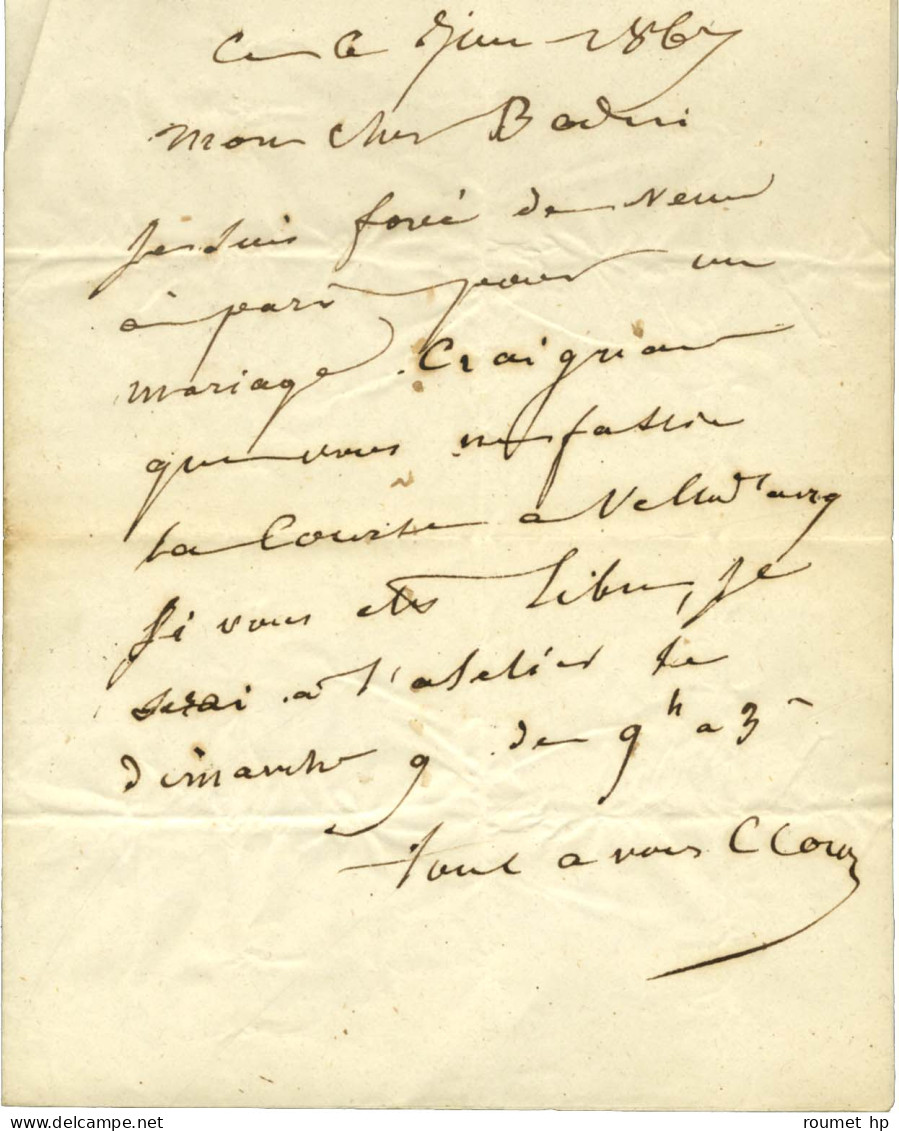 ce 6 Juin 1867
Mon cher Badin
Je suis forcé de venir
à paris pour un
mariage. Craignant
que vous ne fassiez
la Course a
Si vous etes libre, je
serai à l'atelier le
dimanche 9 de 9h a 3
tout a vous
roumet hp